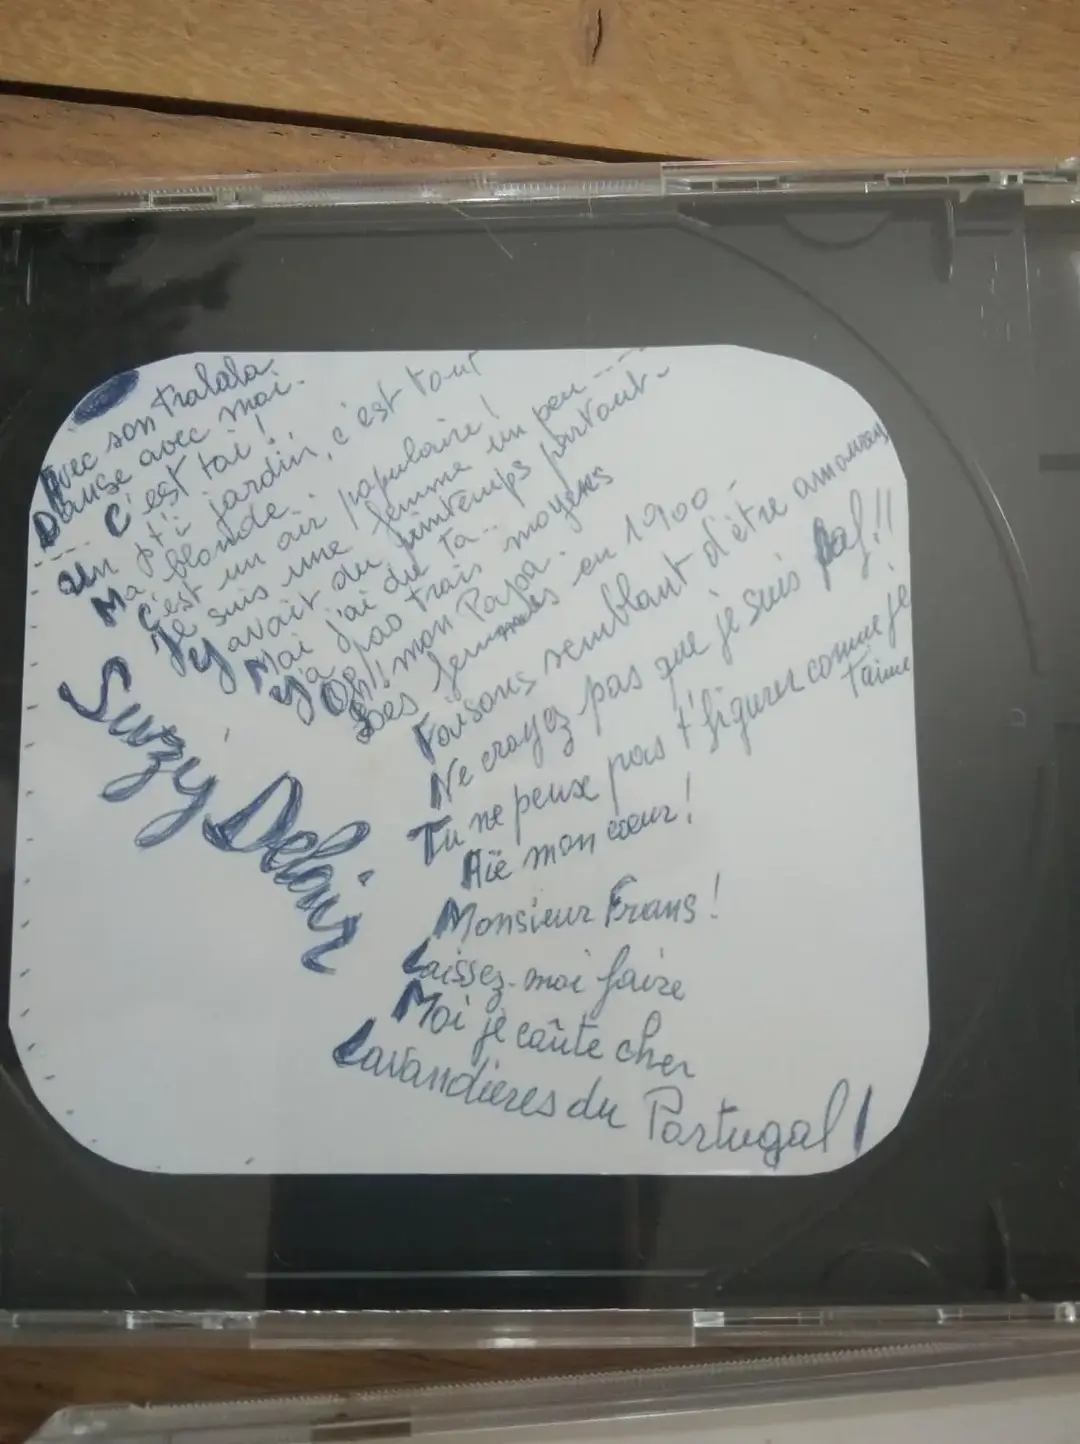 Avec son tralala.
Danse avec moi.
C'est toi !
Un p'ti jardin, c'est tout
Ma blonde.
C'est un air populaire !
Je suis une femme un peu ----
Y avait du printemps partout-
Moi j'ai du Ta..
Y'a pas trois moyens
Oh!! mon Papa
Des femmes en 1900 -
Faisons semblant d'être amoureux
Ne croyez pas que je suis paf !!
Tu ne peux pas t'figurer comme je
t'aime
Aïe mon cœur !
Monsieur Frans !
Laissez-moi faire
Moi je coûte cher
Lavandières du Portugal !
Suzy Delair